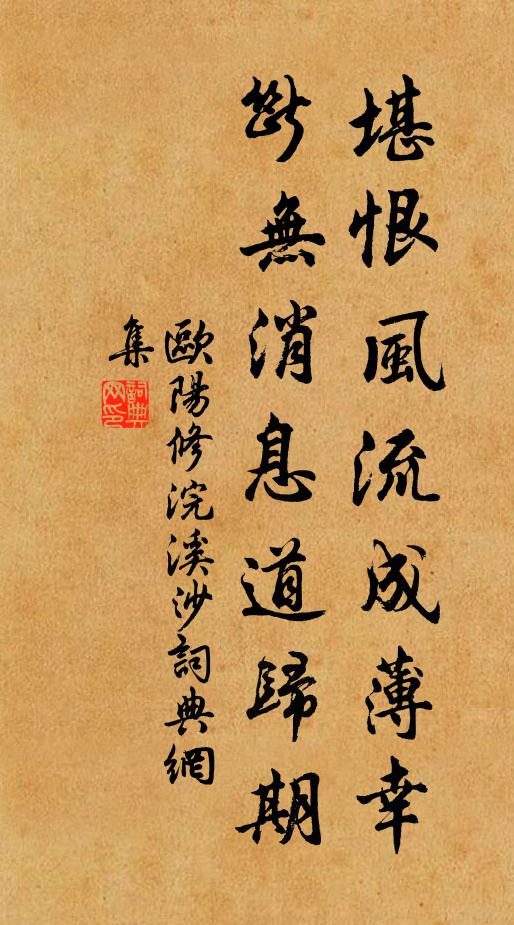 堪恨風流成薄幸
斷無消息道歸期
歐陽修浣溪沙詞典網
集
詞典網印